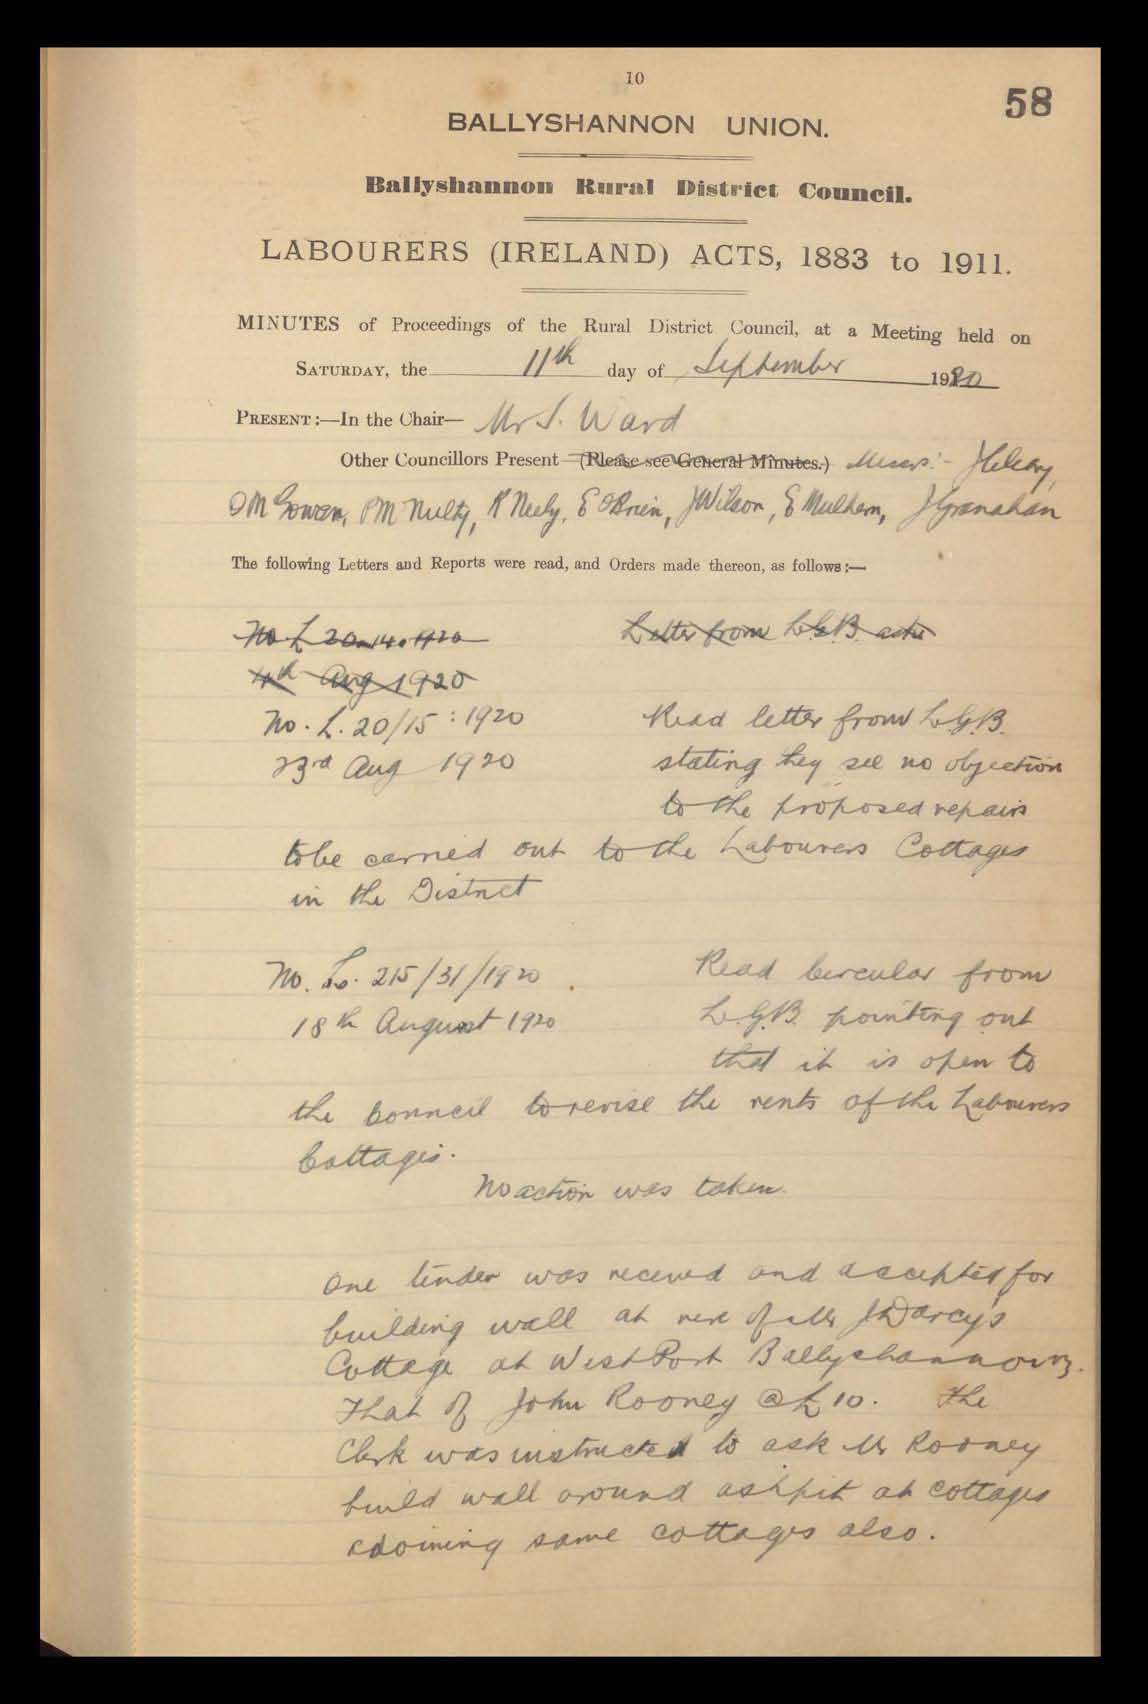 10
58
BALLYSHANNON UNION.
Ballyshannon Rural District Council.
LABOURERS (IRELAND) ACTS, 1883 to 1911.
MINUTES of Proceedings of the Rural District Council, at a Meeting held on
SATURDAY, the 11th day of September 1920
PRESENT:—In the Chair— Mr S. Ward
Other Councillors Present—(Please see General Minutes.) Messrs:- J Cleary,
D McGowan, P McNulty, R Neely, E O'Brien, J Wilson, E Mulhern, J Granahan
The following Letters and Reports were read, and Orders made thereon, as follows:—
No L 20.14.1920 Letter from LGB. asks
4th Aug 1920
No. L. 20/15:1920 Read letter from L.G.B.
23rd Aug 1920 stating they see no objection
to the proposed repairs
to be carried out to the Labourers Cottages
in the District
No. L. 215/31/1920 Read Circular from
18th August 1920 L.G.B. pointing out
that it is open to
the Council to revise the rents of the Labourers
Cottages.
No action was taken.
One tender was received and accepted for
building wall at rere of Mr J D'arcy's
Cottage at West Port Ballyshannon
That of John Rooney @ £10. The
Clerk was instructed to ask Mr Rooney
build wall around ashpit at cottages
adoining same cottages also.